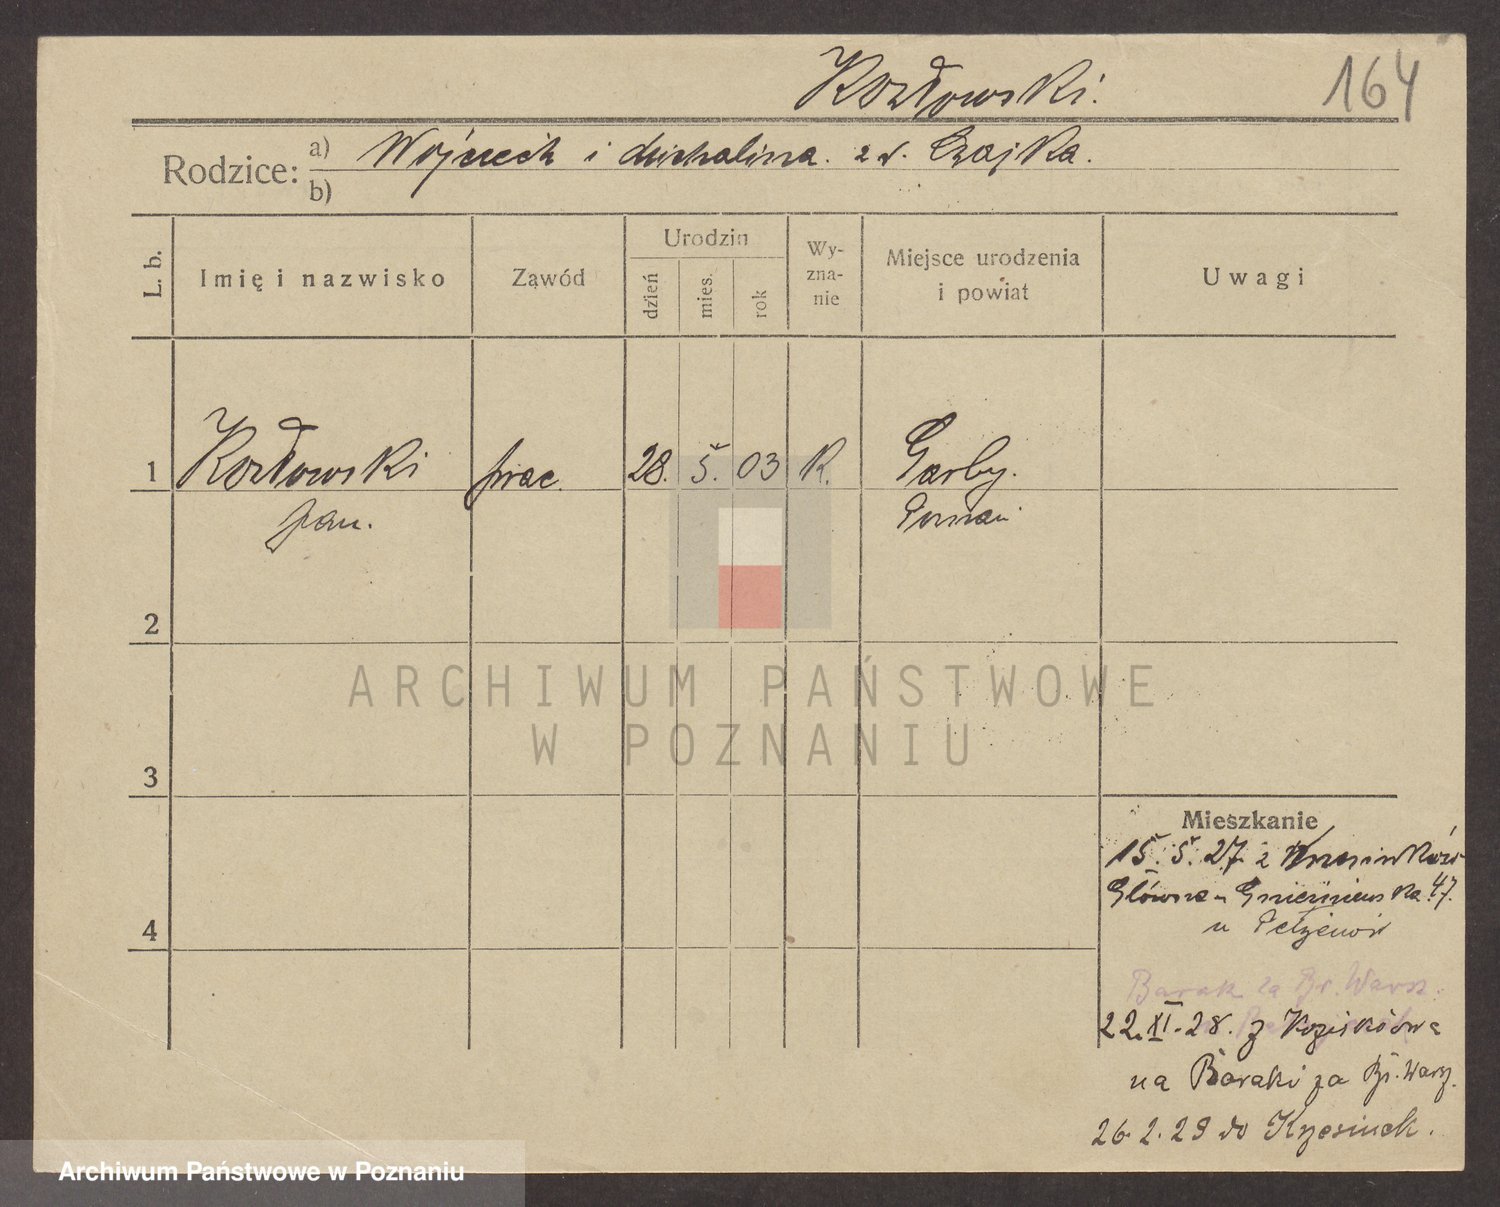 Kozłowski.
164
Rodzice: a) Wojciech i Michalina. z d. Czajka.
b)
L. b.
Imię i nazwisko
Zawód
Urodzin
dzień
mies.
rok
Wy-
zna-
nie
Miejsce urodzenia
i powiat
Uwagi
1 Kozłowski prac. 28. 5. 03 K. Garby.
pan. Poznań
2
ARCHIWUM PAŃSTWOWE
W POZNANIU
3
Mieszkanie
15. 5. 27. z
Główna - Gnieźnieńska 47.
u
4
Barak za Br. Warsz.
22. XI. 28. z
na Baraki za Br. Warsz.
26. 2. 29 do Krzesinek.
Archiwum Państwowe w Poznaniu